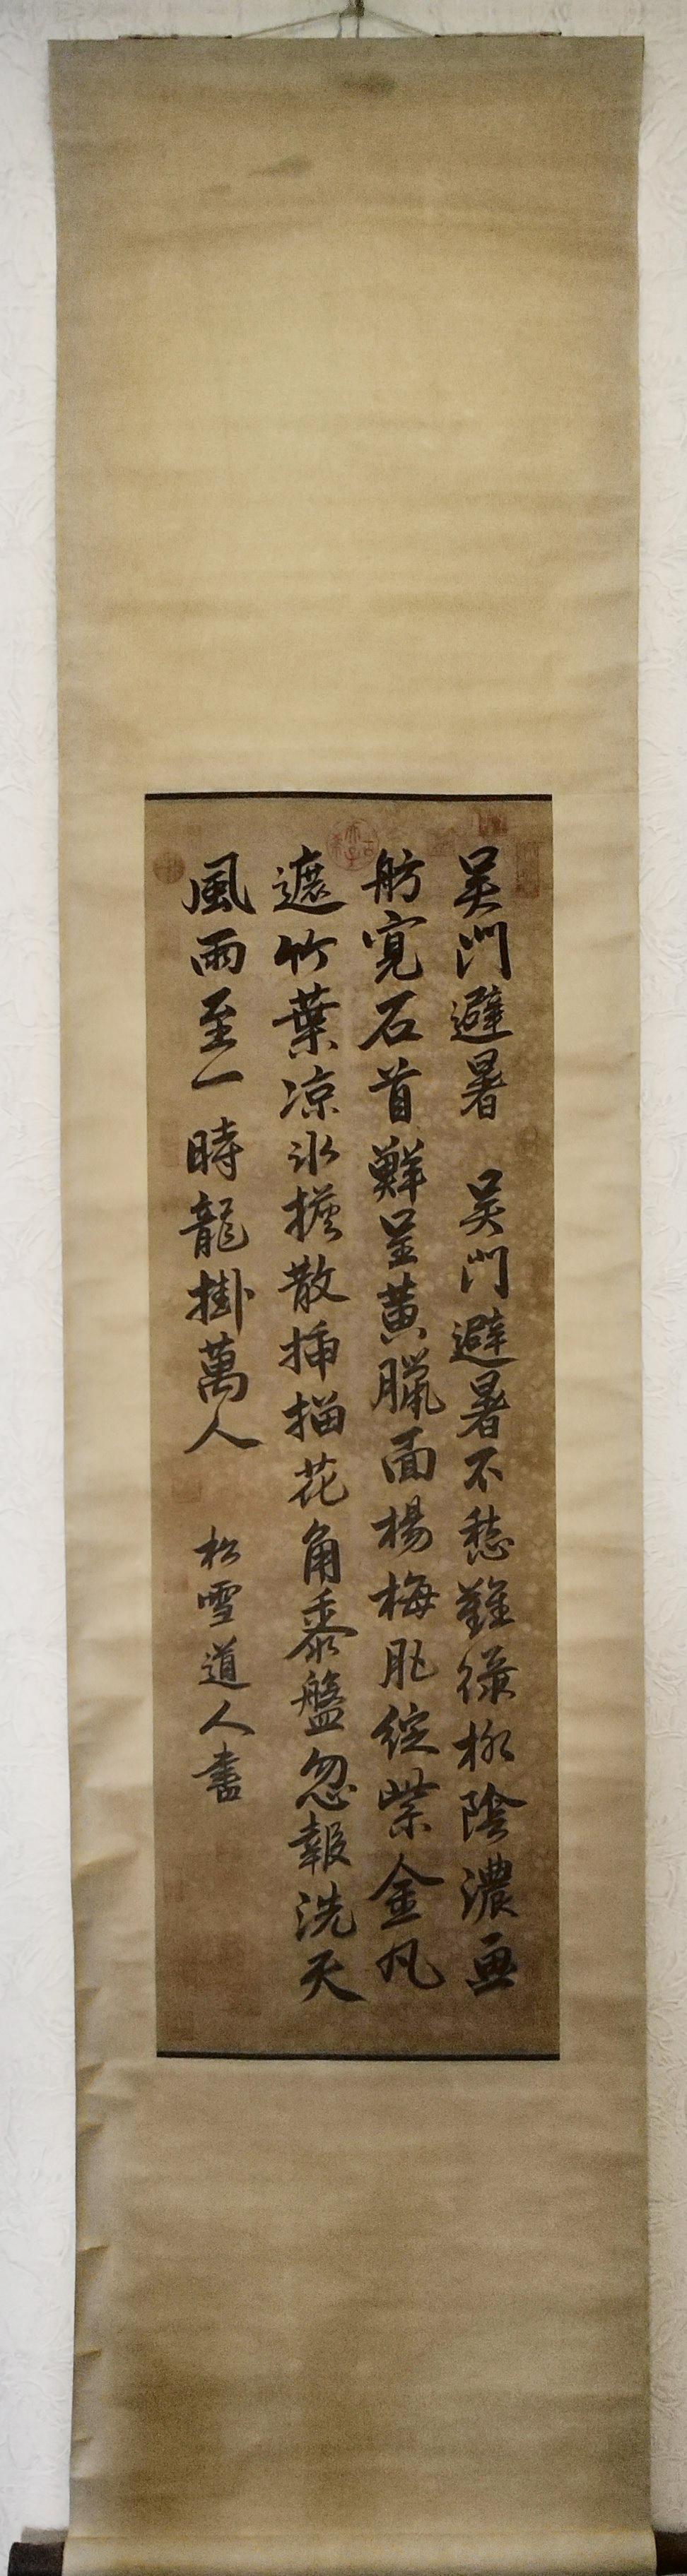 吴門避暑 吴門避暑不愁難綠柳陰濃畫
舫寬石首鮮呈黃臘面楊梅肥綻紫金丸
遮竹葉凉冰擔散插描花角黍盤忽報洗天
風雨至一時龍掛萬人
松雪道人書